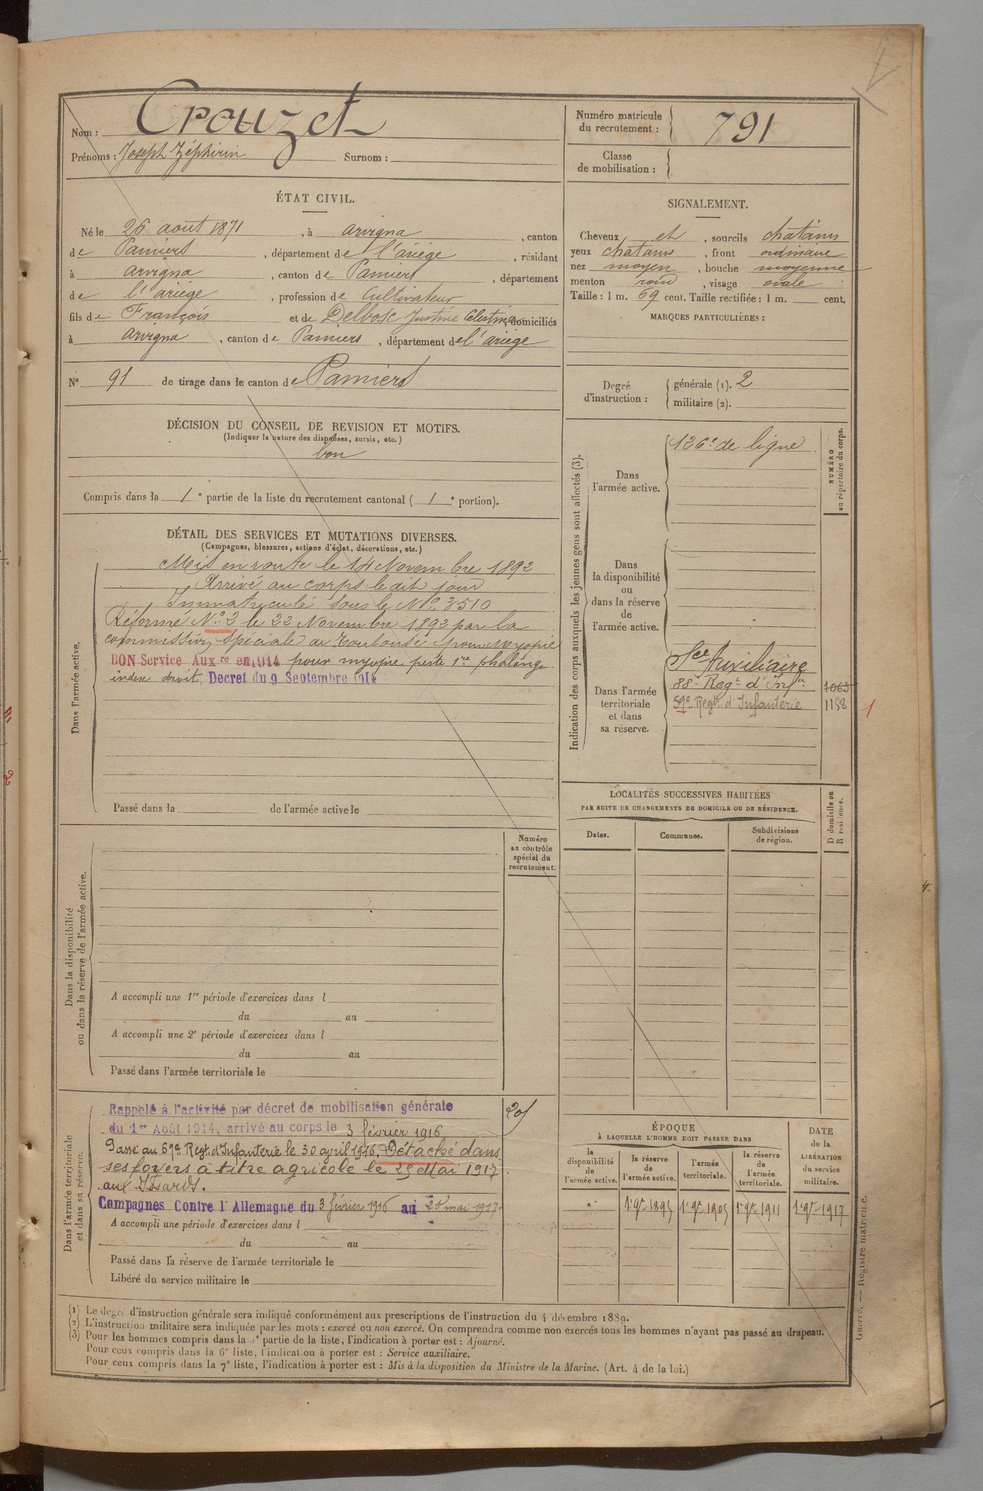 Nom : Crouzet
Prénoms : Joseph Zéphirin Surnom :
Numéro matricule du recrutement : 791
Classe de mobilisation :
ÉTAT CIVIL.
Né le 26 août 1871, à arvigna, canton
de Pamiers, département de l'ariège, résidant
à arvigna, canton de Pamiers, département
de l'ariège, profession de Cultivateur
fils de François et de Delbosc Justine Célestine, domiciliés
à arvigna, canton de Pamiers, département de l'ariège
N° 91 de tirage dans le canton de Pamiers
SIGNALEMENT.
Cheveux et, sourcils chatains
yeux chatains, front ordinaire
nez moyen, bouche moyenne
menton rond, visage ovale
Taille : 1 m. 69 cent. Taille rectifiée : 1 m. cent.
MARQUES PARTICULIÈRES :
Degré d'instruction : générale (1). 2
militaire (2).
DÉCISION DU CONSEIL DE REVISION ET MOTIFS.
(Indiquer la nature des dispenses, sursis, etc.)
bon
Compris dans la 1e partie de la liste du recrutement cantonal (1e portion).
DÉTAIL DES SERVICES ET MUTATIONS DIVERSES.
(Campagnes, blessures, actions d'éclat, décorations, etc.)
Dans l'armée active.
Mis en route le 14 Novembre 1892
Arrivé au corps le dit jour
Immatriculé sous le N° 3510
Réformé N° 2 le 22 Novembre 1892 par la
commission spéciale de Toulouse pour myopie
BON Service Auxre en 1914 pour myopie perte 1re phalange
index droit. Decret du 9 Septembre 1914
Passé dans la de l'armée active le
Indication des corps auxquels les jeunes gens sont affectés (3).
NUMÉRO au répertoire du corps.
Dans l'armée active.
126e de ligne
Dans la disponibilité ou dans la réserve de l'armée active.
Dans l'armée territoriale et dans sa réserve.
Sce Auxiliaire
88e Regt d'Infrie 1063
59e Regt d'Infanterie 1188
1
LOCALITÉS SUCCESSIVES HABITÉES
PAR SUITE DE CHANGEMENTS DE DOMICILE OU DE RÉSIDENCE.
Dates. Communes. Subdivisions de région. D domicile ou R résidence.
Dans la disponibilité ou dans la réserve de l'armée active.
Numéro au contrôle spécial du recrutement.
A accompli une 1re période d'exercices dans l
du au
A accompli une 2e période d'exercices dans l
du au
Passé dans l'armée territoriale le
Dans l'armée territoriale et dans sa réserve.
Rappelé à l'activité par décret de mobilisation générale
du 1er Août 1914, arrivé au corps le 3 février 1916
Passé au 59e Regt d'Infanterie le 30 avril 1916. Détaché dans
ses foyers à titre agricole le 25 Mai 1917
aux Izards.
Campagnes Contre l'Allemagne du 3 février 1916 au 25 mai 1917
A accompli une période d'exercices dans l
du au
Passé dans la réserve de l'armée territoriale le
Libéré du service militaire le
ÉPOQUE
À LAQUELLE L'HOMME DOIT PASSER DANS
la disponibilité de l'armée active. la réserve de l'armée active. l'armée territoriale. la réserve de l'armée territoriale. DATE de la LIBÉRATION du service militaire.
1er 9bre 1895 1er 9bre 1905 1er 9bre 1911 1er 9bre 1917
(1) Le degré d'instruction générale sera indiqué conformément aux prescriptions de l'instruction du 4 décembre 1889.
(2) L'instruction militaire sera indiquée par les mots : exercé ou non exercé. On comprendra comme non exercés tous les hommes n'ayant pas passé au drapeau.
(3) Pour les hommes compris dans la 5e partie de la liste, l'indication à porter est : Ajourné.
Pour ceux compris dans la 6e liste, l'indication à porter est : Service auxiliaire.
Pour ceux compris dans la 7e liste, l'indication à porter est : Mis à la disposition du Ministre de la Marine. (Art. 4 de la loi.)
Guerre. — Registre matricule.